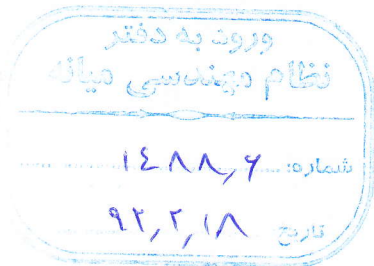 ورود به دفتر
نظام مهندسی میانه
شماره: ۱۴۸۸٫۶
تاریخ ۹۲٫۲٫۱۸